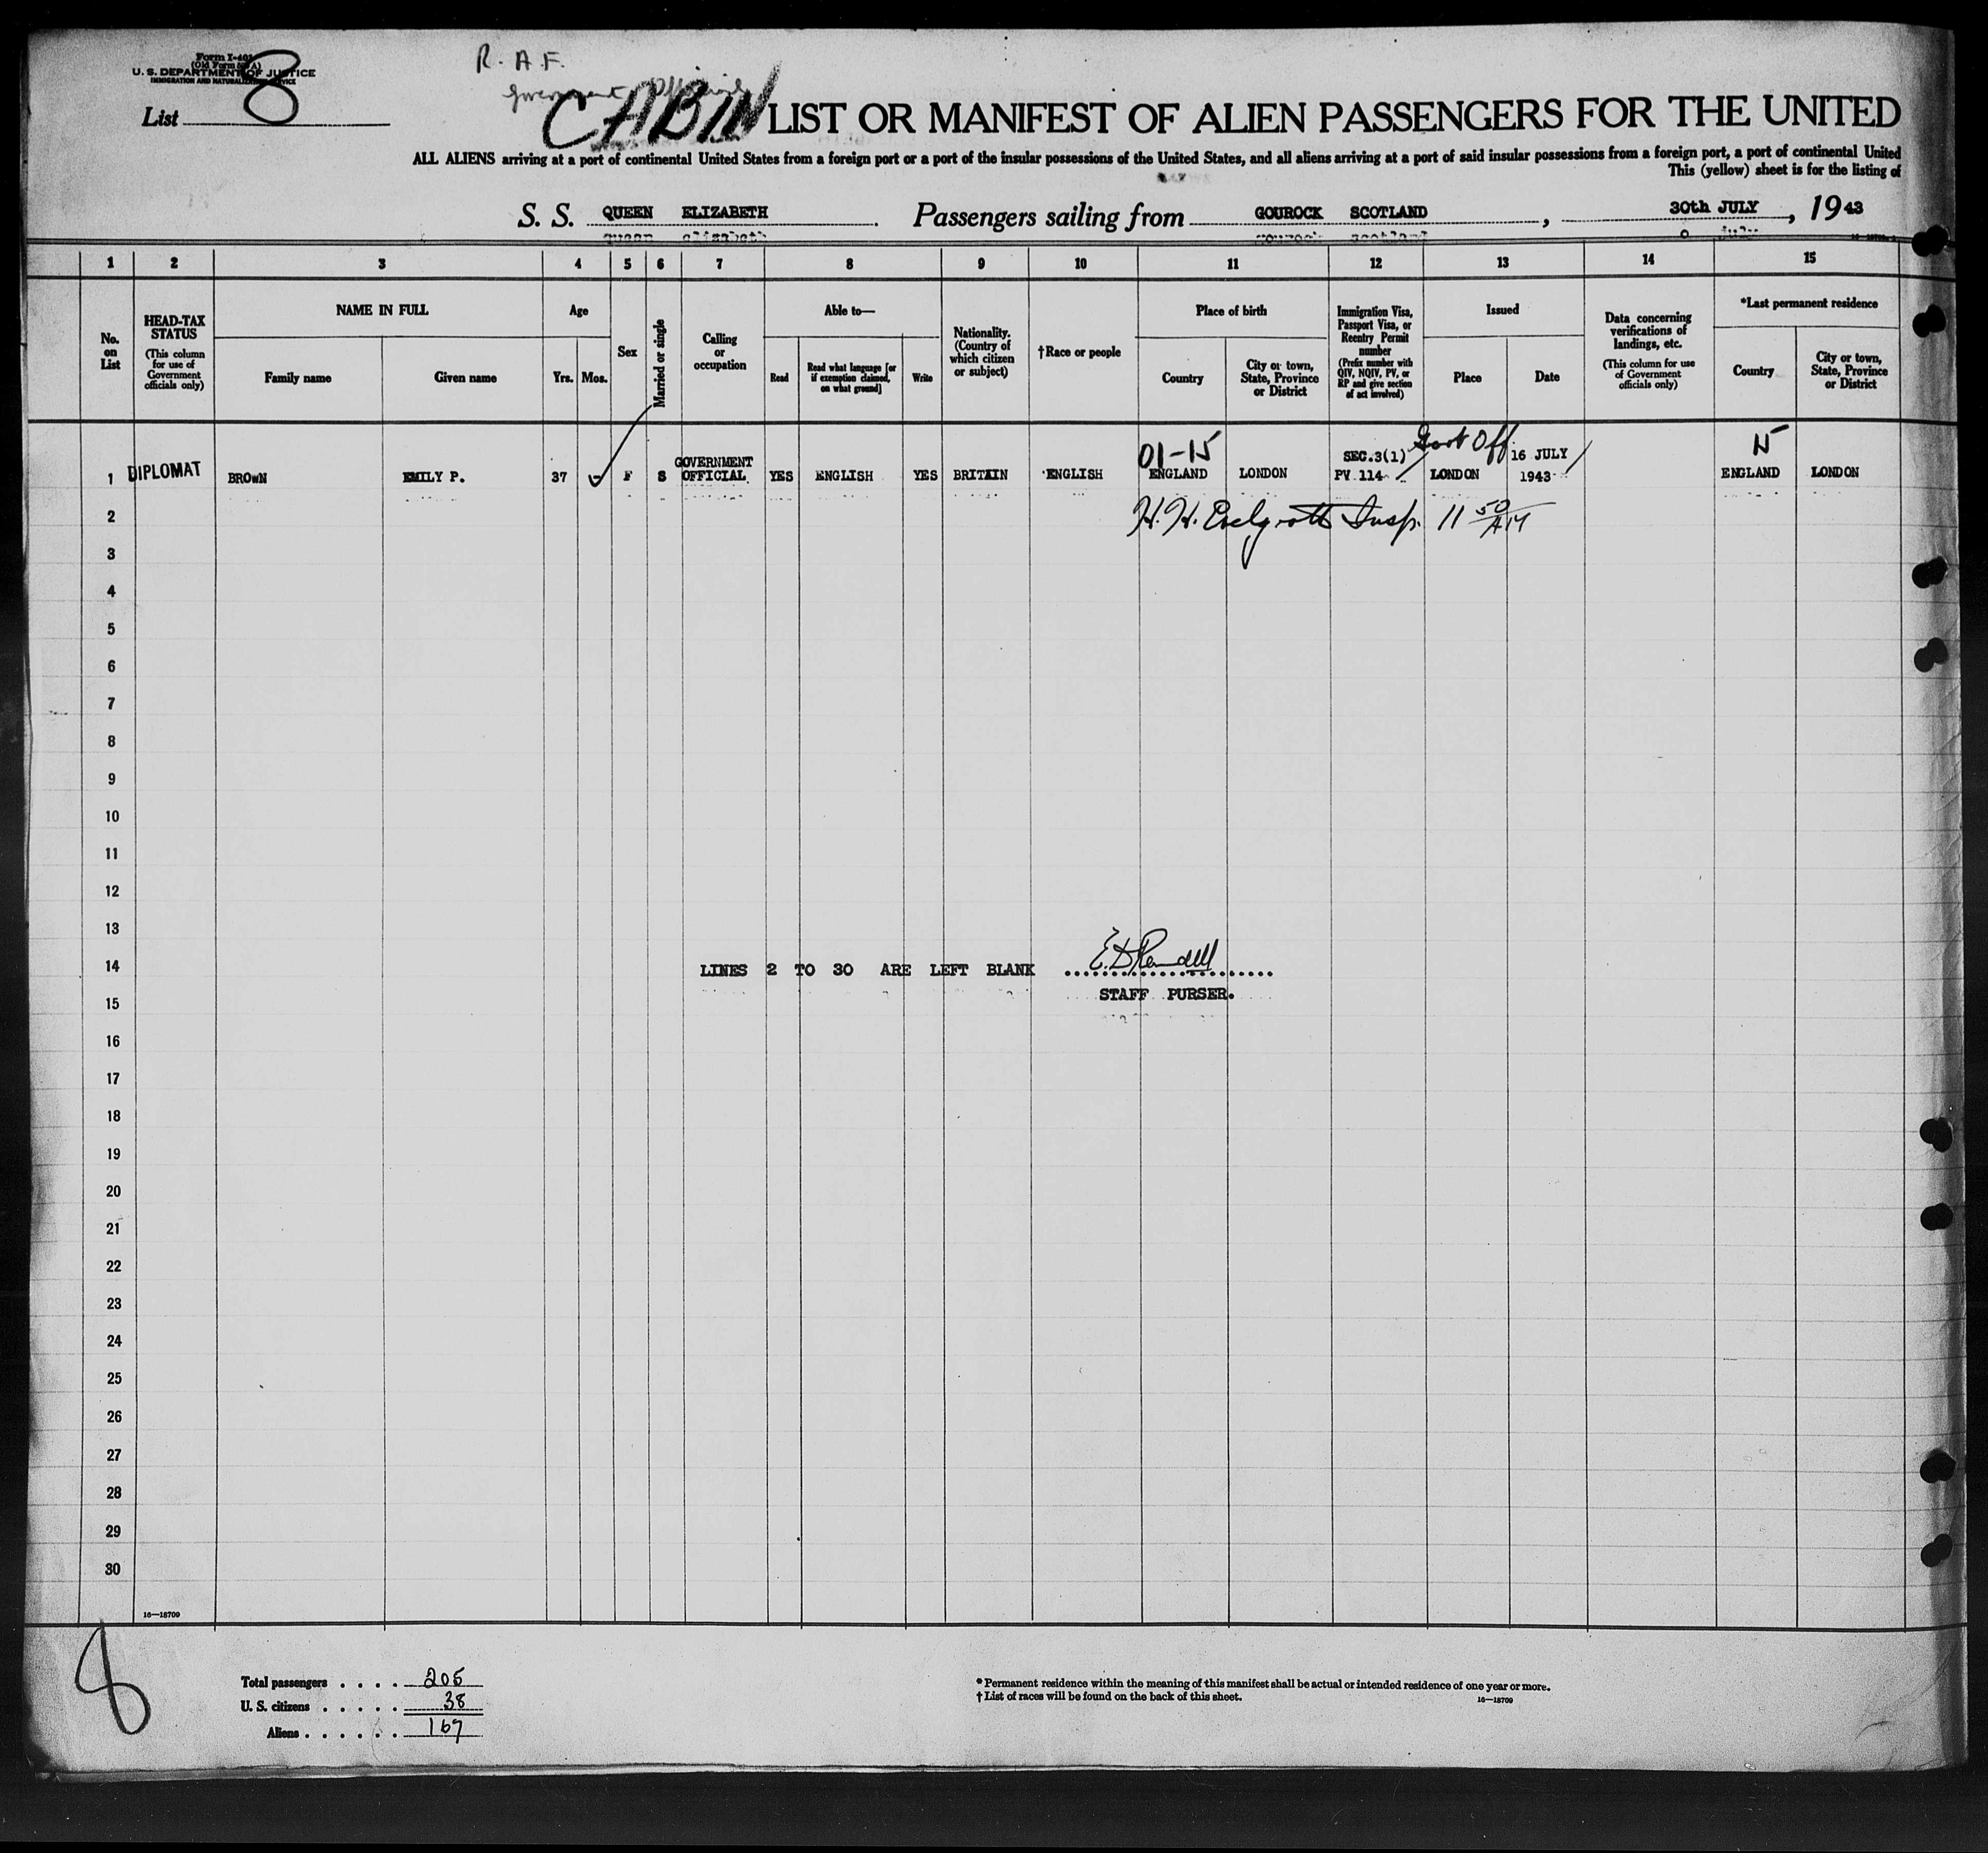 Form I-401
(Old Form 500 A)
U. S. DEPARTMENT OF JUSTICE
IMMIGRATION AND NATURALIZATION SERVICE
List 8
R. A. F.
Government Officials
CABIN LIST OR MANIFEST OF ALIEN PASSENGERS FOR THE UNITED
ALL ALIENS arriving at a port of continental United States from a foreign port or a port of the insular possessions of the United States, and all aliens arriving at a port of said insular possessions from a foreign port, a port of continental United
This (yellow) sheet is for the listing of
S. S. QUEEN ELIZABETH Passengers sailing from GOUROCK SCOTLAND, 30th JULY, 1943
1 2 3 4 5 6 7 8 9 10 11 12 13 14 15
No. on List
HEAD-TAX STATUS
(This column for use of Government officials only)
NAME IN FULL
Family name Given name
Age
Yrs. Mos.
Sex
Married or single
Calling or occupation
Able to—
Read Read what language [or if exemption claimed, on what ground] Write
Nationality. (Country of which citizen or subject)
†Race or people
Place of birth
Country City or town, State, Province or District
Immigration Visa, Passport Visa, or Reentry Permit number
(Prefix number with QIV, NQIV, PV, or RP and give section of act involved)
Issued
Place Date
Data concerning verifications of landings, etc.
(This column for use of Government officials only)
*Last permanent residence
Country City or town, State, Province or District
01-15 Govt Off. 15
1 DIPLOMAT BROWN EMILY P. 37 F S GOVERNMENT OFFICIAL YES ENGLISH YES BRITAIN ENGLISH ENGLAND LONDON SEC.3(1) PV 114 LONDON 16 JULY 1943 ENGLAND LONDON
2 H. H. Insp. 11 50 AM
3
4
5
6
7
8
9
10
11
12
13
14 LINES 2 TO 30 ARE LEFT BLANK E.D Rendell
15 STAFF PURSER.
16
17
18
19
20
21
22
23
24
25
26
27
28
29
30
16—18709
8
Total passengers . . . . 205
U. S. citizens . . . . . 38
Aliens . . . . . . 167
* Permanent residence within the meaning of this manifest shall be actual or intended residence of one year or more.
† List of races will be found on the back of this sheet. 16—18709